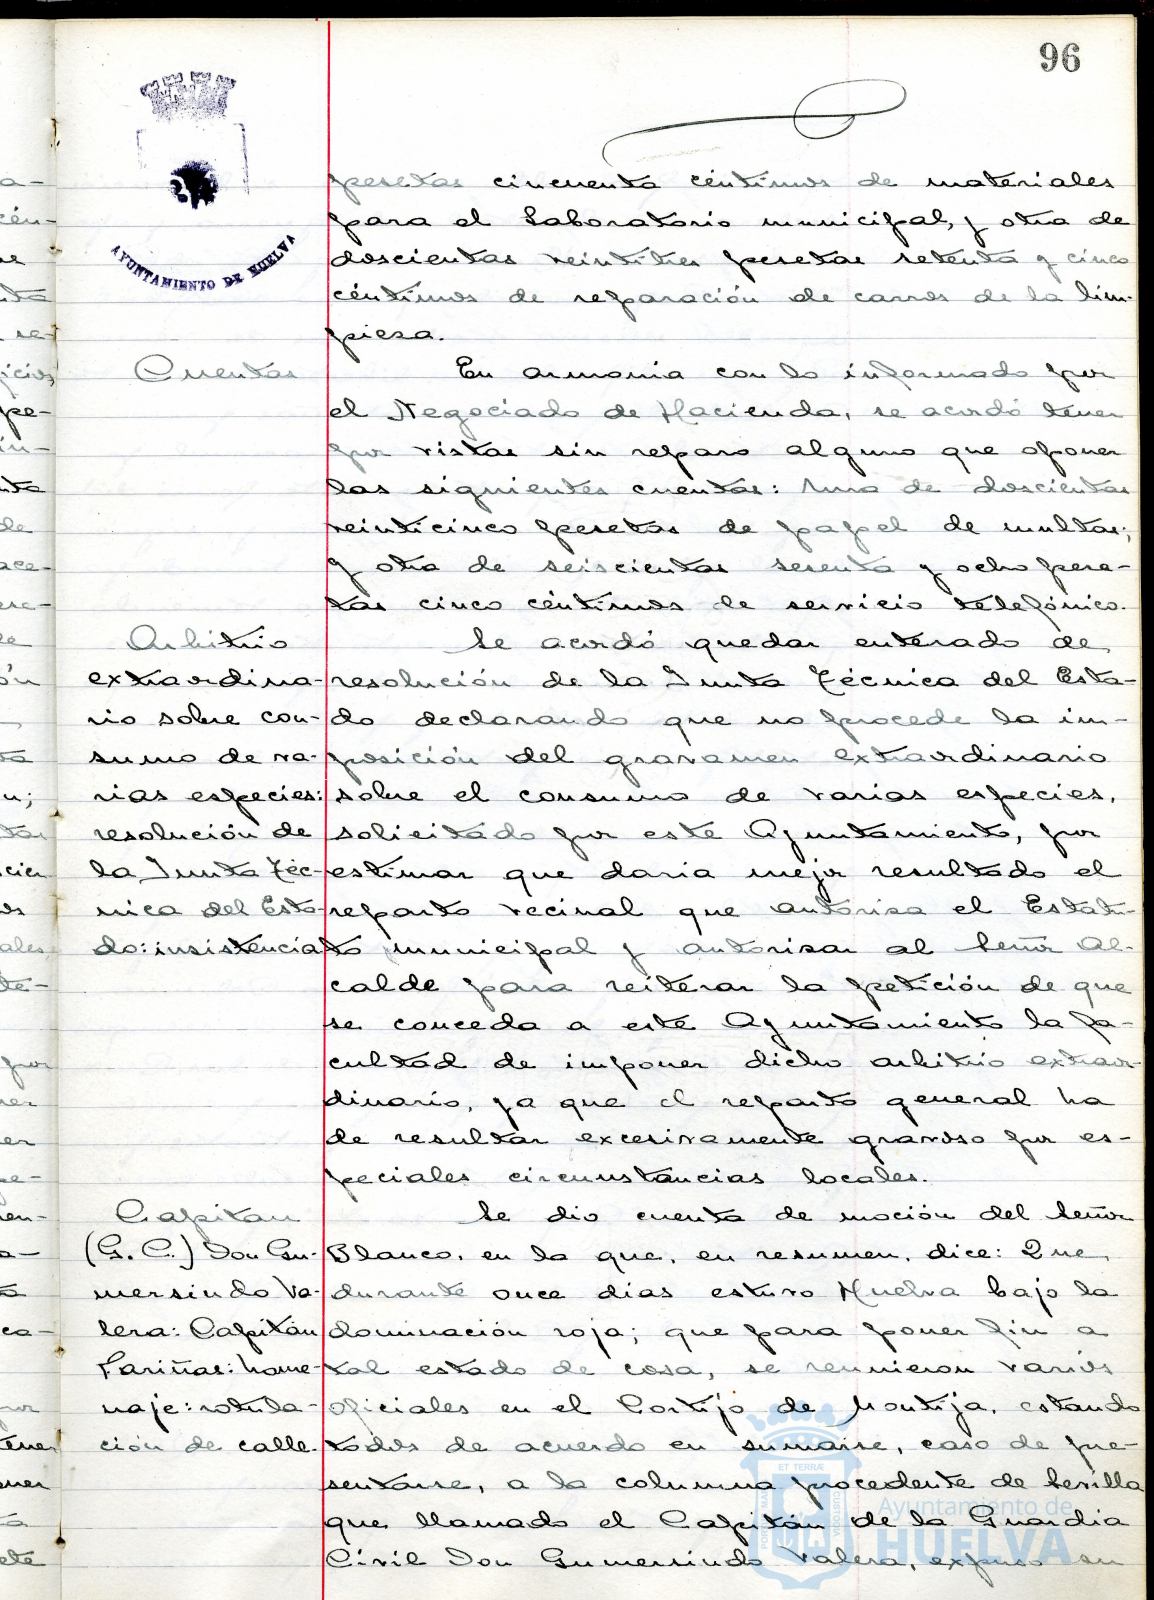 96
AYUNTAMIENTO DE HUELVA
pesetas cincuenta céntimos de materiales
para el Laboratorio municipal, y otra de
doscientas veintitres pesetas setenta y cinco
céntimos de reparación de carros de la lim-
pieza.
Cuentas
En armonia con lo informado por
el Negociado de Hacienda, se acordó tener
por vistas sin reparo alguno que oponer
las siguientes cuentas: Una de doscientas
veinticinco pesetas de papel de multas;
y otra de seiscientas sesenta y ocho pese-
tas cinco céntimos de servicio telefónico.
Arbitrio
extraordina-
rio sobre con-
sumo de va-
rias especies:
resolución de
la Junta Téc-
nica del Esta-
do: insistencia
Se acordó quedar enterado de
resolución de la Junta Técnica del Esta-
do declarando que no procede la im-
posición del gravamen extraordinario
sobre el consumo de varias especies,
solicitado por este Ayuntamiento, por
estimar que daria mejor resultado el
reparto vecinal que autorisa el Estatu-
to municipal y autorisar al Señor Al-
calde para reiterar la petición de que
se conceda a este Ayuntamiento la fa-
cultad de imponer dicho arbitrio extraor
dinario, ya que el reparto general ha
de resultar excesivamente gravoso por es-
peciales circunstancias locales.
Capitan
(G. C.) Don Gu-
mersindo Va-
lera: Capitán
Fariñas: home-
naje: rotula-
ción de calle.
Se dio cuenta de moción del Señor
Blanco, en la que, en resumen, dice: Que
durante once dias estuvo Huelva bajo la
dominación roja; que para poner fin a
tal estado de cosa, se reunieron varios
oficiales en el Cortijo de Montija, estando
todos de acuerdo en sumarse, caso de pre-
sentarse, a la columna procedente de Sevilla
que llamado el Capitán de la Guardia
Civil Don Gumersindo Valera, expuso su
ET TERRÆ
Ayuntamiento de
HUELVA